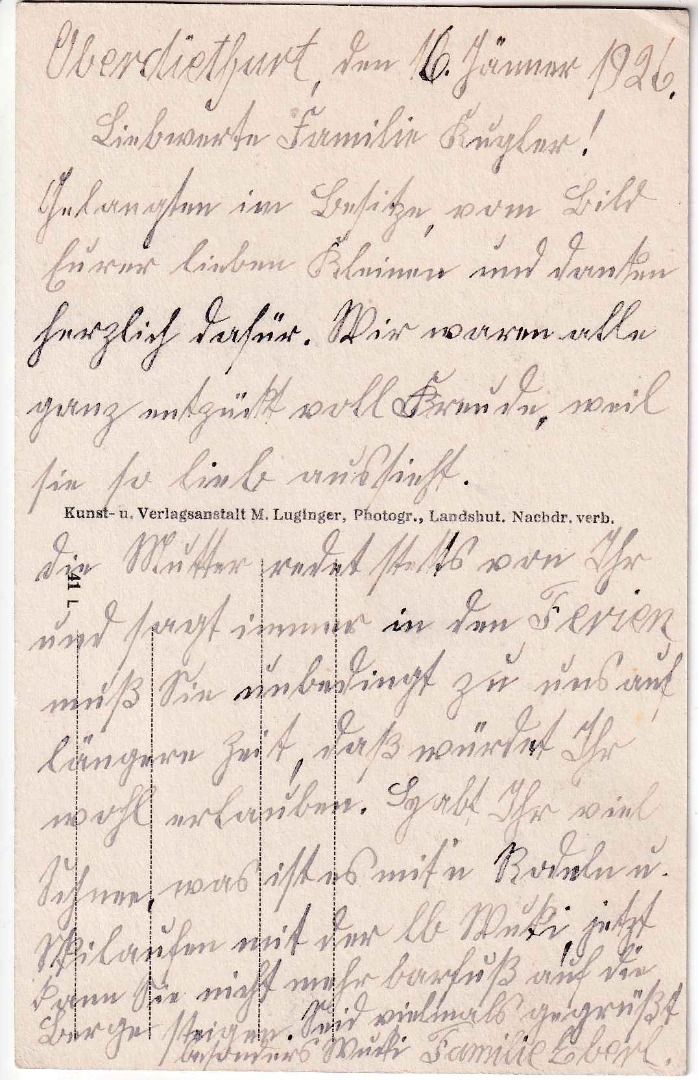 Oberdietfurt, den 16. Jänner 1926.
Liebwerte Familie Kugler!
Gelangten im Besitze, vom Bild
Eurer lieben Kleinen und danken
herzlich dafür. Wir waren alle
ganz entzückt voll Freude, weil
sie so lieb aussieht.
Kunst- u. Verlagsanstalt M. Luginger, Photogr., Landshut. Nachdr. verb.
41 L
die Mutter redet stetts von Ihr
und sagt immer in den Ferien
muß Sie unbedingt zu uns auf
längere Zeit, daß würdet Ihr
wohl erlauben. Habt Ihr viel
Schnee, was ist es mit'n Rodeln u.
Skilaufen mit der lb Wuki, jetzt
kann Sie nicht mehr barfuß auf die
Berge steigen. Seid vielmals gegrüßt
besonders Wuki Familie Eberl.